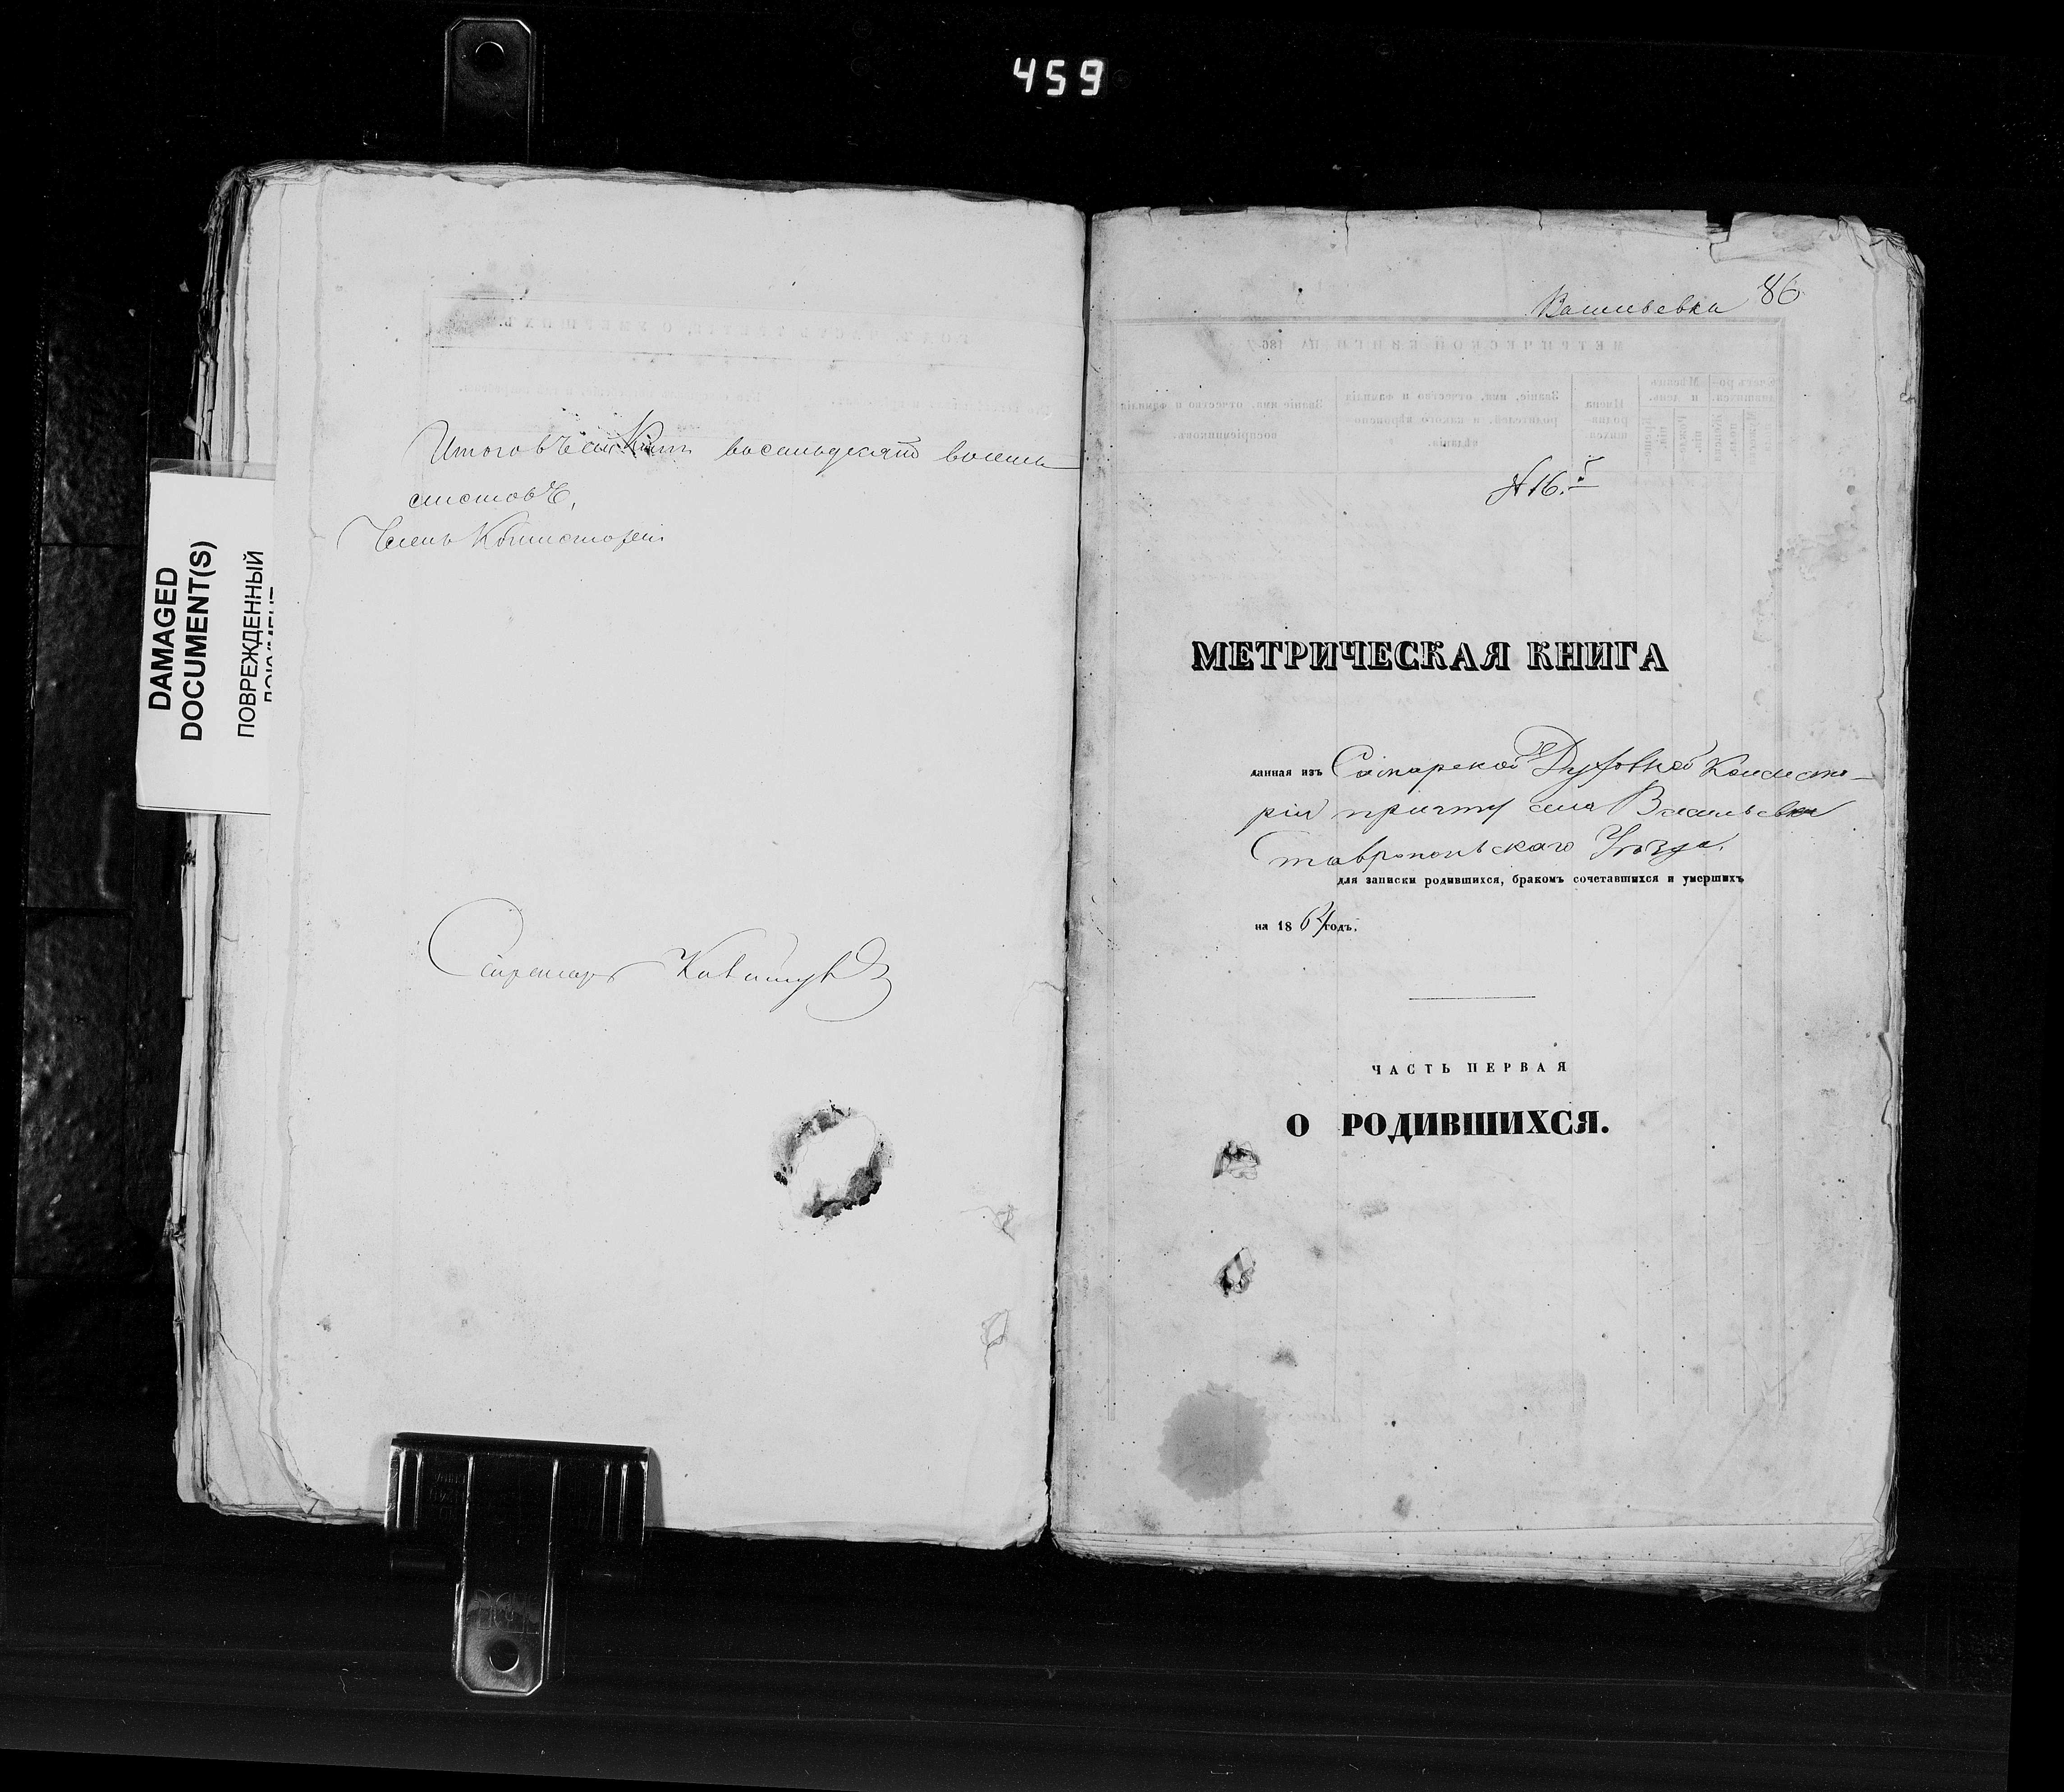 459
DAMAGED
DOCUMENT(S)
ПОВРЕЖДЕННЫЙ
Итого въ сей восемьдесятъ восемь
листовъ,
Членъ Консисторіи
Секретарь
Васильевка 86
№ 16.й
МЕТРИЧЕСКАЯ КНИГА
данная изъ Самарской Духовной Консисто-
ріи причту села Васильевки
Ставропольскаго Уѣзда.
для записки родившихся, бракомъ сочетавшихся и умершихъ
на 1864 годъ.
ЧАСТЬ ПЕРВАЯ
О РОДИВШИХСЯ.